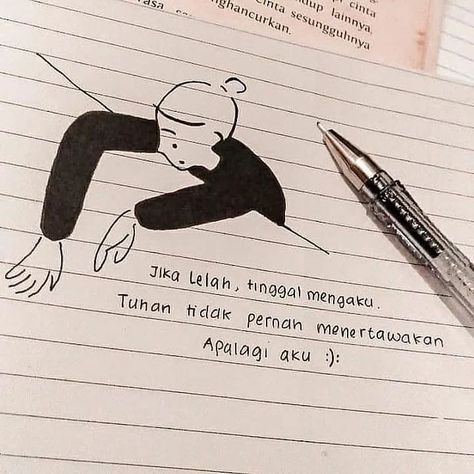 cinta
hidup lainnya,
cinta sesungguhnya
rasa
menghancurkan.
Jika Lelah, tinggal mengaku.
Tuhan tidak pernah menertawakan
Apalagi aku :):